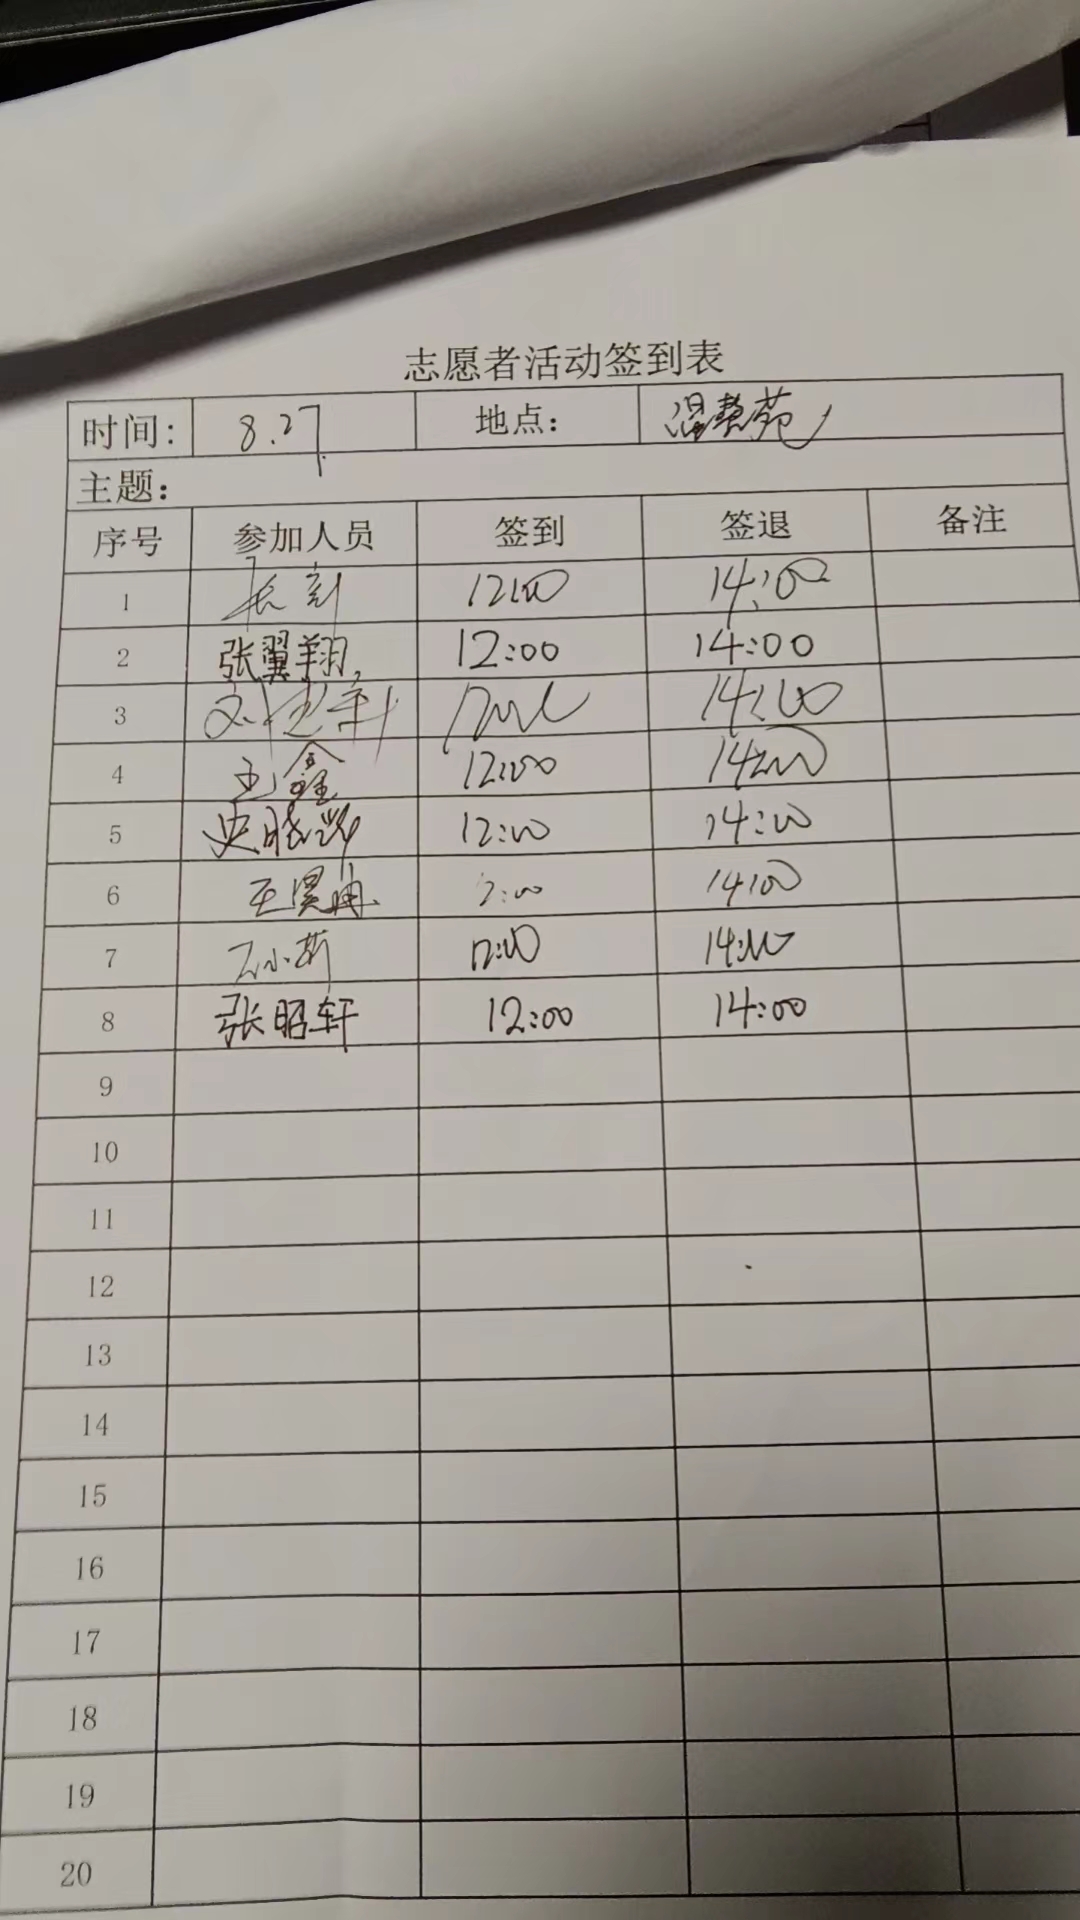 志愿者活动签到表
时间: 8.27 地点:
主题:
序号 参加人员 签到 签退 备注
1 12:00 14:00
2 张翼翔 12:00 14:00
3 14:00
4 王鑫 12:00 14:00
5 史晓 12:00 14:00
6 王昊冉 14:00
7 12:00 14:00
8 张昭轩 12:00 14:00
9
10
11
12
13
14
15
16
17
18
19
20